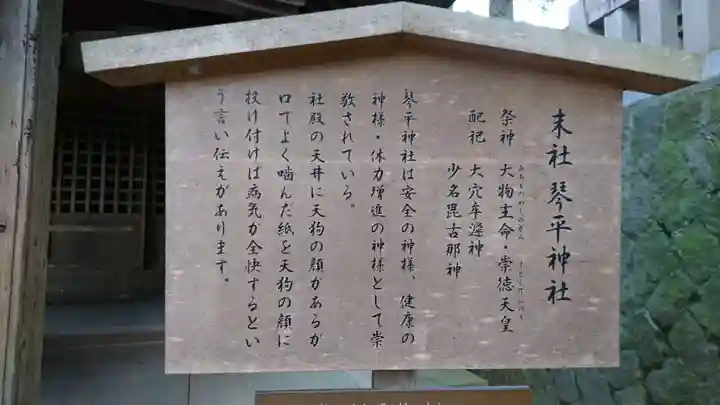 末社琴平神社
祭神 大物主命・崇徳天皇
配祀 大穴牟遅神
少名毘古那神
琴平神社は安全の神様、健康の
神様・体力増進の神様として崇
敬されている。
社殿の天井に天狗の顔があるが
口でよく噛んだ紙を天狗の顔に
投け付けば病気が全快するとい
う言い伝えがあります。